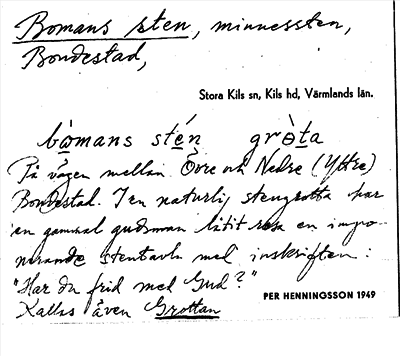 Bomans sten, minnessten,
Bondestad,
Stora Kils sn, Kils hd, Värmlands län.
bòmans stén gròta
På vägen mellan Övre och Nedre (Yttre)
Bondestad. I en naturlig stengrotta har
en gammal gudsman låtit resa en impo-
nerande stentavla med inskriften:
"Har du frid med Gud?"
PER HENNINGSSON 1949
Kallas även Grottan